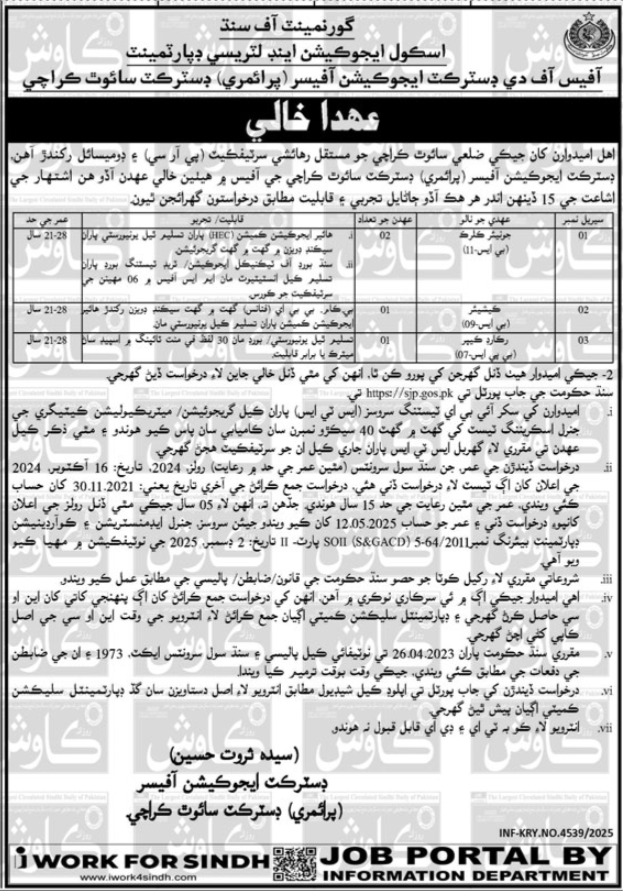 گورنمينٽ آف سنڌ
اسڪول ايجوڪيشن اينڊ لٽريسي ڊپارٽمينٽ
آفيس آف دي ڊسٽرڪٽ ايجوڪيشن آفيسر (پرائمري) ڊسٽرڪٽ سائوٿ ڪراچي
عهدا خالي
اهل اميدوارن کان جيڪي ضلعي سائوٿ ڪراچي جو مستقل رهائشي سرٽيفڪيٽ (پي آر سي) ۽ ڊوميسائل رکندڙ آهن،
ڊسٽرڪٽ ايجوڪيشن آفيسر (پرائمري) ڊسٽرڪٽ سائوٿ ڪراچي جي آفيس ۾ هيٺين خالي عهدن آڏو هن اشتهار جي
اشاعت جي 15 ڏينهن اندر هر هڪ آڏو ڄاڻايل تجربي ۽ قابليت مطابق درخواستون گهرائجن ٿيون.
سيريل نمبر | عهدي جو نالو | عهدن جو تعداد | قابليت/ تجربو | عمر جي حد
01 | جونيئر ڪلرڪ (بي ايس-11) | 02 | i. هائير ايجوڪيشن ڪميشن (HEC) پاران تسليم ٿيل يونيورسٽي پاران | 21-28 سال
سيڪنڊ ڊويزن ۾ گهٽ ۾ گهٽ گريجوئيشن.
ii. سنڌ بورڊ آف ٽيڪنيڪل ايجوڪيشن/ ٽريڊ ٽيسٽنگ بورڊ پاران
تسليم ٿيل انسٽيٽيوٽ مان ايم ايس آفيس ۾ 06 مهينن جي
سرٽيفڪيٽ جو ڪورس.
02 | ڪيشيئر (بي ايس-09) | 01 | بي.ڪام. بي بي اي (فنانس) گهٽ ۾ گهٽ سيڪنڊ ڊويزن رکندڙ هائير | 21-28 سال
ايجوڪيشن ڪميشن پاران تسليم ٿيل يونيورسٽي مان.
03 | رڪارڊ ڪيپر (بي ايس-07) | 01 | تسليم ٿيل يونيورسٽي/ بورڊ مان 30 لفظ في منٽ ٽائپنگ ۾ اسپيڊ سان | 21-28 سال
ميٽرڪ يا برابر قابليت.
2- جيڪي اميدوار هيٺ ڏنل گهرجن کي پورو ڪن ٿا، انهن کي مٿي ڏنل خالي جاين لاءِ درخواست ڏيڻ گهرجي.
سنڌ حڪومت جي جاب پورٽل تي https://sjp.gos.pk تي.
i. اميدوارن کي سکر آئي بي اي ٽيسٽنگ سروسز (ايس ٽي ايس) پاران ڪيل گريجوئيشن/ ميٽريڪيوليشن ڪيٽيگري جي
جنرل اسڪريننگ ٽيسٽ کي گهٽ ۾ گهٽ 40 سيڪڙو نمبرن سان ڪاميابي سان پاس ڪيو هوندو ۽ مٿي ذڪر ڪيل
عهدن تي مقرري لاءِ گهربل ايس ٽي ايس پاران جاري ڪيل ان جو سرٽيفڪيٽ هجڻ گهرجي.
ii. درخواست ڏيندڙن جي عمر، جن سنڌ سول سرونٽس (مٿين عمر جي حد ۾ رعايت) رولز 2024، تاريخ: 16 آڪٽوبر، 2024
جي اعلان کان اڳ ٽيسٽ لاءِ درخواست ڏني هئي، درخواست جمع ڪرائڻ جي آخري تاريخ يعني: 30.11.2021 کان حساب
ڪئي ويندي، عمر جي مٿين رعايت جي حد 15 سال هوندي. جڏهن ته، انهن لاءِ 05 سال جيڪي مٿي ڏنل رولز جي اعلان
کانپوءِ درخواست ڏني ۽ عمر جو حساب 12.05.2025 کان ڪيو ويندو جيئن سروسز، جنرل ايڊمنسٽريشن ۽ ڪوآرڊينيشن
ڊپارٽمينٽ بيئرنگ نمبر SOII (S&GACD) 5-64/2011 پارٽ-II تاريخ: 2 ڊسمبر، 2025 جي نوٽيفڪيشن ۾ مهيا ڪيو
ويو آهي.
iii. شروعاتي مقرري لاءِ رکيل ڪوٽا جو حصو سنڌ حڪومت جي قانون/ضابطن/ پاليسي جي مطابق عمل ڪيو ويندو
iv. اهي اميدوار جيڪي اڳ ۾ ئي سرڪاري نوڪري ۾ آهن، انهن کي درخواست جمع ڪرائڻ کان اڳ پنهنجي کاتي کان اين او
سي حاصل ڪرڻ گهرجي ۽ ڊپارٽمينٽل سليڪشن ڪميٽي اڳيان جمع ڪرائڻ لاءِ انٽرويو جي وقت اين او سي جي اصل
ڪاپي کڻي اچڻ گهرجي.
v. مقرري سنڌ حڪومت پاران 26.04.2023 تي نوٽيفائي ڪيل پاليسي ۽ سنڌ سول سرونٽس ايڪٽ، 1973 ۽ ان جي ضابطن
جي دفعات جي مطابق ڪئي ويندي، جيڪي وقت بوقت ترميم ڪيا ويندا.
vi. درخواست ڏيندڙن کي جاب پورٽل تي اپلوڊ ڪيل شيڊيول مطابق انٽرويو لاءِ اصل دستاويزن سان گڏ ڊپارٽمينٽل سليڪشن
ڪميٽي اڳيان پيش ٿيڻ گهرجي.
vii. انٽرويو لاءِ ڪو به ٽي اي ۽ ڊي اي قابل قبول نه هوندو
(سيده ثروت حسين)
ڊسٽرڪٽ ايجوڪيشن آفيسر
(پرائمري) ڊسٽرڪٽ سائوٿ ڪراچي.
INF-KRY.NO.4539/2025
i WORK FOR SINDH
www.iwork4sindh.com
JOB PORTAL BY
INFORMATION DEPARTMENT